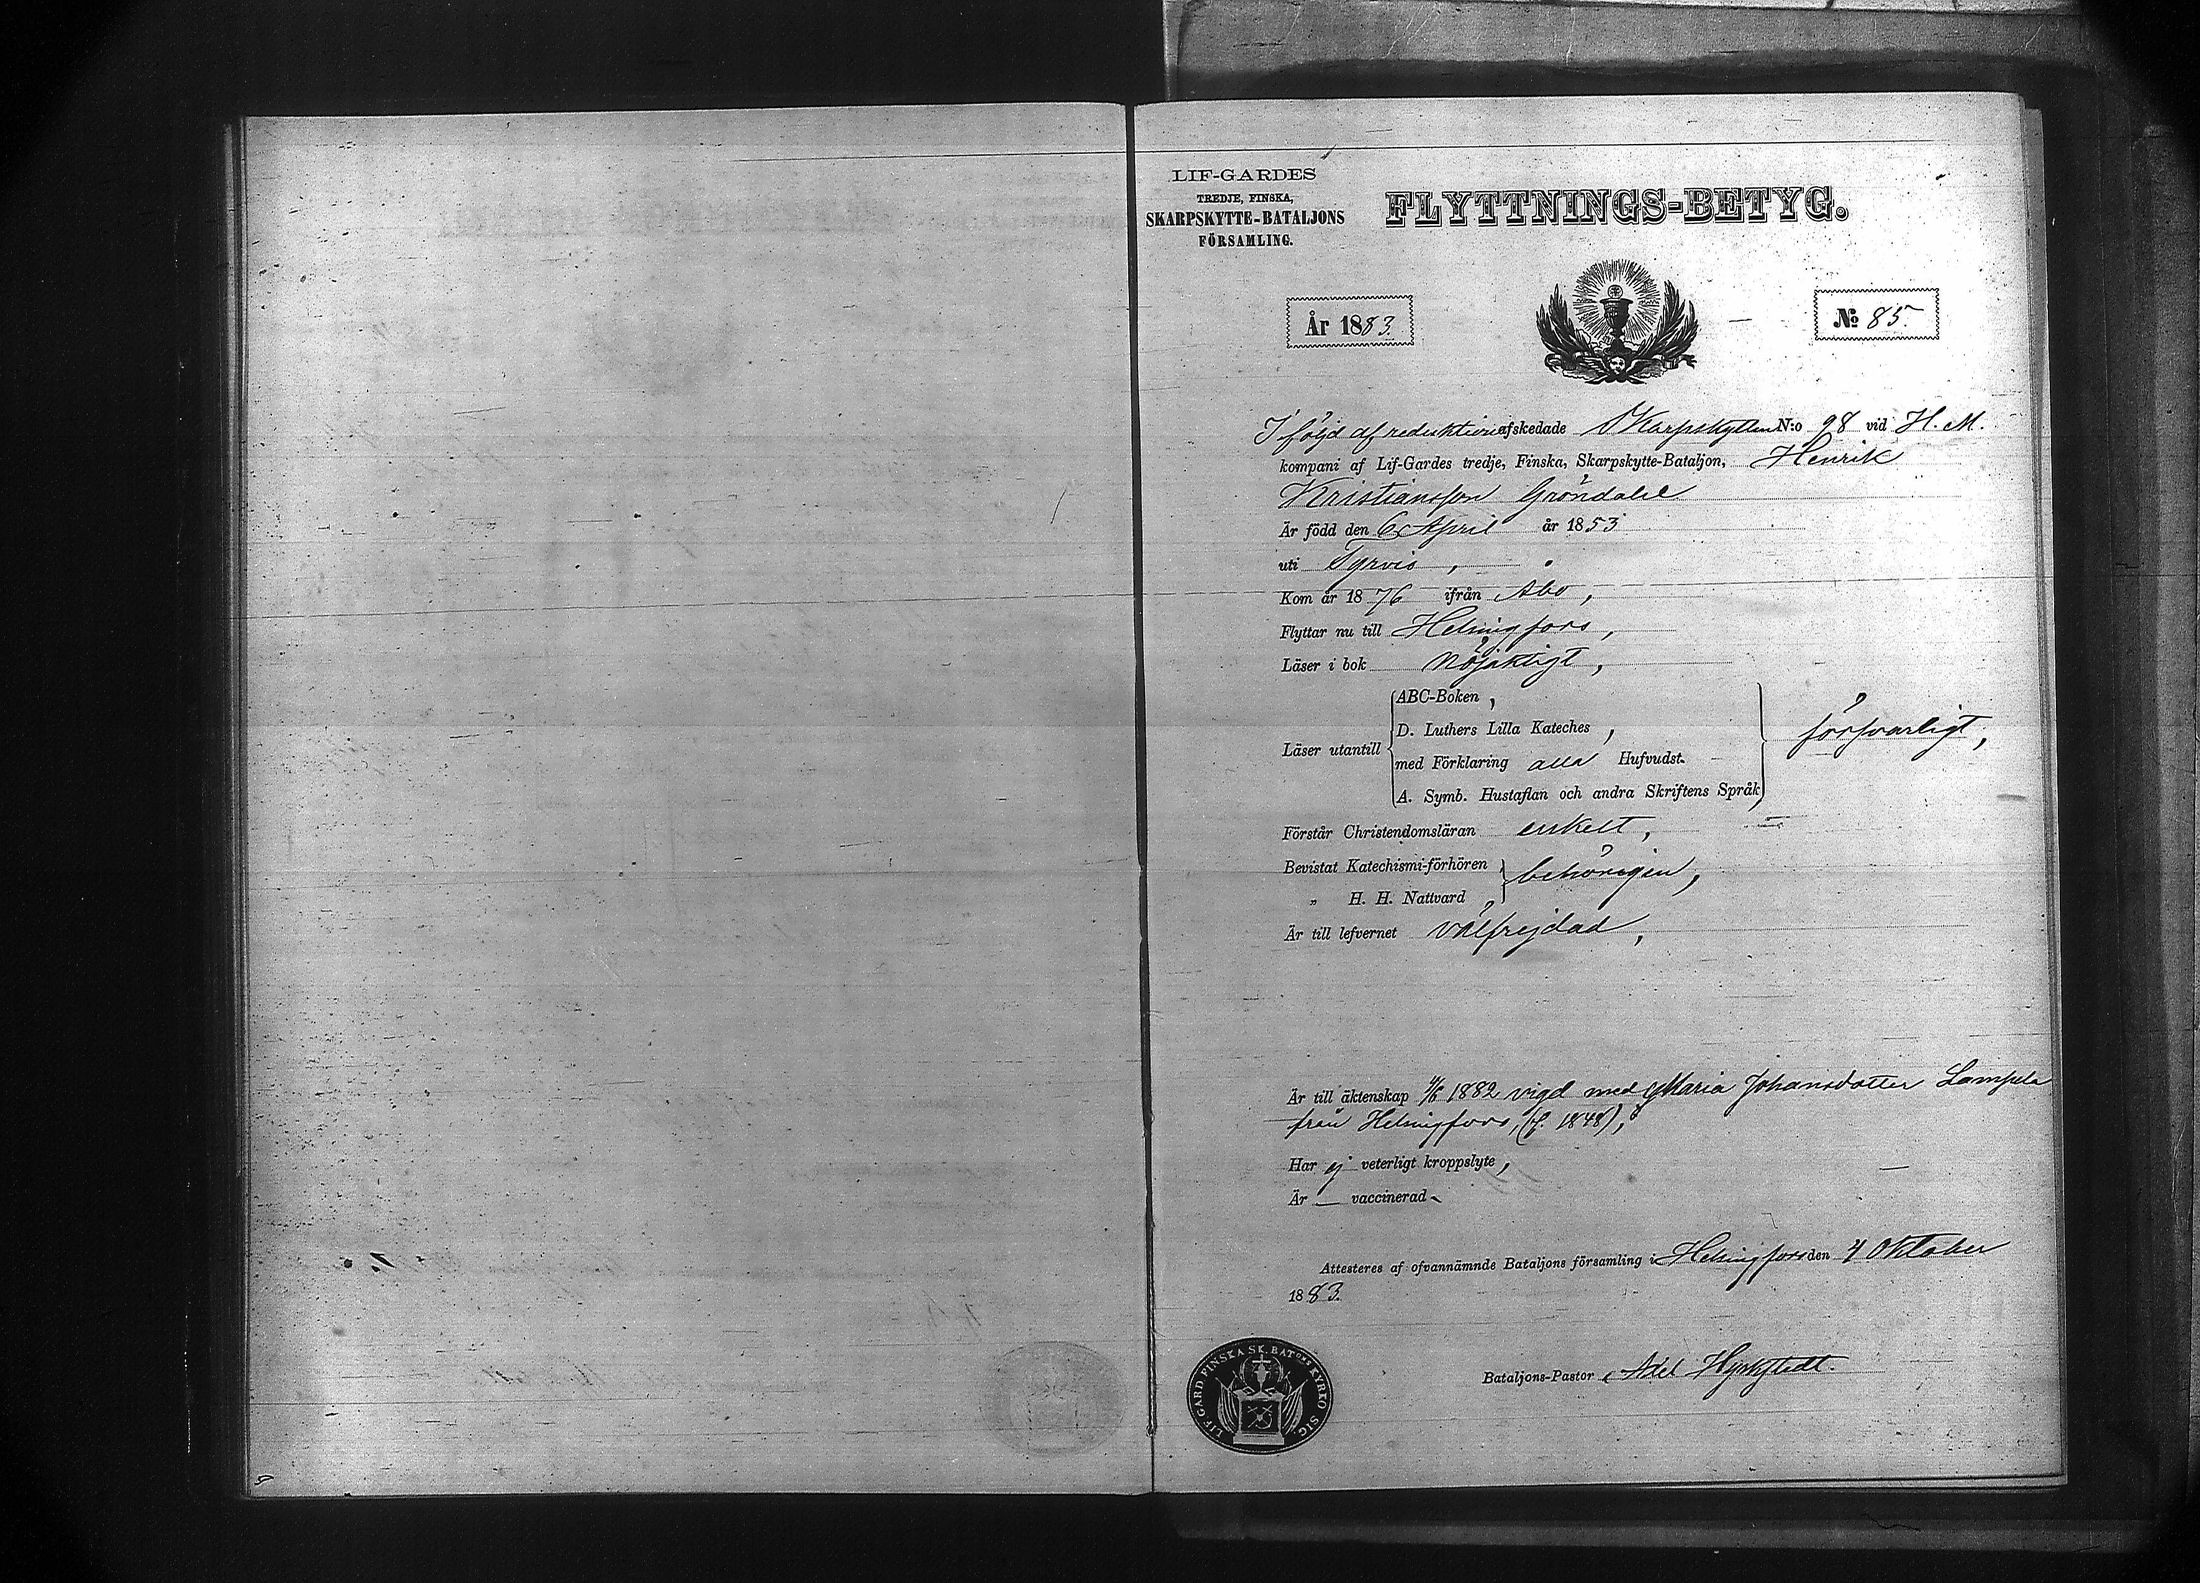 LIF-GARDES
TREDJE, FINSKA,
SKARPSKYTTE-BATALJONS
FÖRSAMLING.
FLYTTNINGS-BETYG.
År 1883.
No 85.
I följd af reduktion afskedade Skarpskytten N:o 98 vid H. M.
kompani af Lif-Gardes tredje, Finska, Skarpskytte-Bataljon, Henrik
Kristiansson Gröndahl
Är född den 6 April år 1853
uti Tyrvis,
Kom år 1876 ifrån Åbo,
Flyttar nu till Helsingfors,
Läser i bok nöjaktigt,
Läser utantill
ABC-Boken,
D. Luthers Lilla Kateches,
med Förklaring alla Hufvudst.
A. Symb. Hustaflan och andra Skriftens Språk
försvarligt,
Förstår Christendomsläran enkelt,
Bevistat Katechismi-förhören
" H. H. Nattvard
behörigen,
Är till lefvernet välfrejdad,
Är till äktenskap 4/6 1882 vigd med Maria Johansdotter Lampela
från Helsingfors, (f. 1848),
Har ej veterligt kroppslyte,
Är — vaccinerad
Attesteres af ofvannämnde Bataljons församling i Helsingfors den 4 Oktober
1883.
Bataljons-Pastor Axel
LIF. GARD FINSKA SK. BATONS KYRKO SIG.